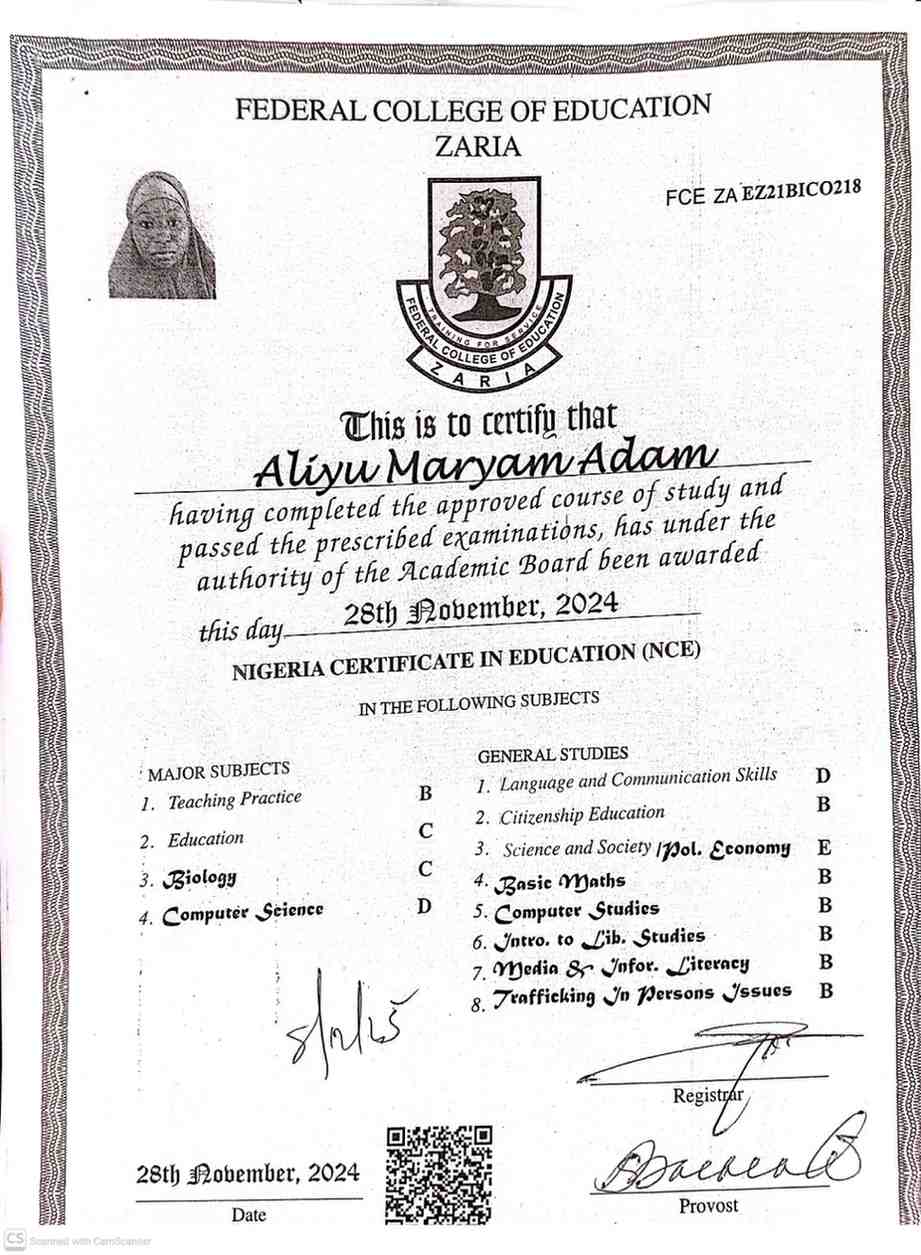 FEDERAL COLLEGE OF EDUCATION
ZARIA
FCE ZA EZ21BICO218
TRAINING FOR SERVICE
FEDERAL COLLEGE OF EDUCATION
ZARIA
This is to certify that
Aliyu Maryam Adam
having completed the approved course of study and
passed the prescribed examinations, has under the
authority of the Academic Board been awarded
this day 28th November, 2024
NIGERIA CERTIFICATE IN EDUCATION (NCE)
IN THE FOLLOWING SUBJECTS
MAJOR SUBJECTS
1. Teaching Practice B
2. Education C
3. Biology C
4. Computer Science D
GENERAL STUDIES
1. Language and Communication Skills D
2. Citizenship Education B
3. Science and Society /Pol. Economy E
4. Basic Maths B
5. Computer Studies B
6. Intro. to Lib. Studies B
7. Media & Infor. Literacy B
8. Trafficking In Persons Issues B
8/12/25
Registrar
28th November, 2024
Date
Provost
CS Scanned with CamScanner